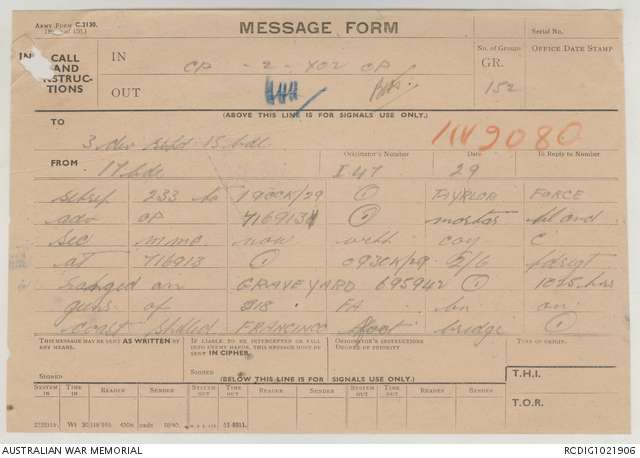 ARMY FORM C.2130.
MESSAGE FORM
Serial No.
CALL AND INSTRUCTIONS
IN
CP - 2 - YO2 CP
OUT
No. of Groups
GR.
152
OFFICE DATE STAMP
(ABOVE THIS LINE IS FOR SIGNALS USE ONLY.)
TO
3 div rept 15 bde
FROM
17 bde
Originator's Number
I 47
Date
29
In Reply to Number
sitrep 233 to 1900K/29 TAYLOR FORCE
adv OP 716913 mortar pl and
sec mmg now with coy C
at 716913 0930K/29 2/6 fdregt
ranged on GRAVEYARD 695942 1025 hrs
guns of 218 FA bn on
coast shelled FRANCISCO foot bridge
THIS MESSAGE MAY BE SENT AS WRITTEN BY ANY MEANS.
SIGNED
IF LIABLE TO BE INTERCEPTED OR FALL INTO ENEMY HANDS, THIS MESSAGE MUST BE SENT IN CIPHER.
SIGNED
ORIGINATOR'S INSTRUCTIONS
DEGREE OF PRIORITY
TIME OF ORIGIN.
(BELOW THIS LINE IS FOR SIGNALS USE ONLY.)
T.H.I.
T.O.R.
SYSTEM IN
TIME IN
READER
SENDER
SYSTEM OUT
TIME OUT
READER
SENDER
SYSTEM OUT
TIME OUT
READER
SENDER
AUSTRALIAN WAR MEMORIAL
RCDIG1021906